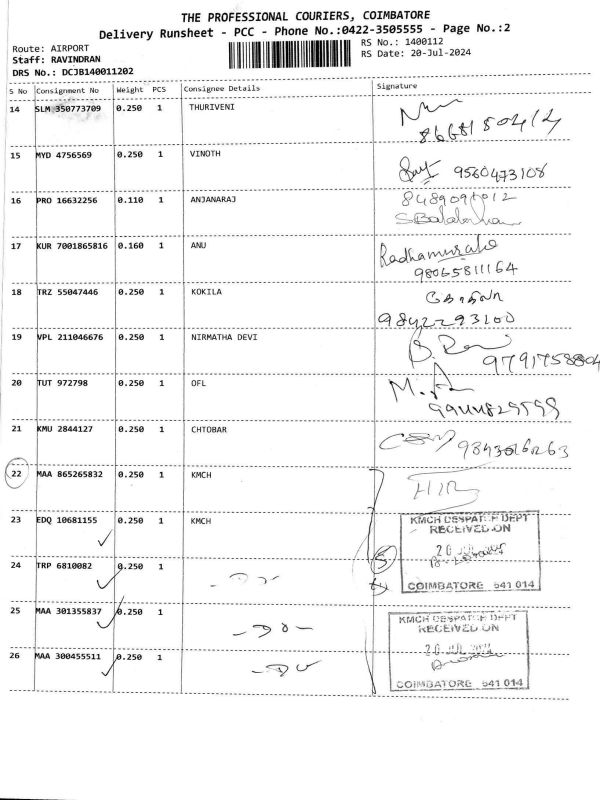 THE PROFESSIONAL COURIERS, COIMBATORE
Delivery Runsheet - PCC - Phone No.:0422-3505555 - Page No.:2
Route: AIRPORT
RS No.: 1400112
Staff: RAVINDRAN
RS Date: 20-Jul-2024
DRS No.: DCJB140011202
S No Consignment No Weight PCS Consignee Details Signature
14 SLM 350773709 0.250 1 THURIVENI
15 MYD 4756569 0.250 1 VINOTH
9560473108
16 PRO 16632256 0.110 1 ANJANARAJ
17 KUR 7001865816 0.160 1 ANU
98065811164
18 TRZ 55047446 0.250 1 KOKILA
கோகிலா
9842293100
19 VPL 211046676 0.250 1 NIRMATHA DEVI
9791758804
20 TUT 972798 0.250 1 OFL
21 KMU 2844127 0.250 1 CHTOBAR
22 MAA 865265832 0.250 1 KMCH
23 EDQ 10681155 0.250 1 KMCH
KMCH DESPATCH DEPT
RECEIVED ON
COIMBATORE 641 014
5
24 TRP 6810082 0.250 1
25 MAA 301355837 0.250 1
KMCH DESPATCH DEPT
RECEIVED ON
20 JUL 2024
COIMBATORE 641 014
26 MAA 300455511 0.250 1